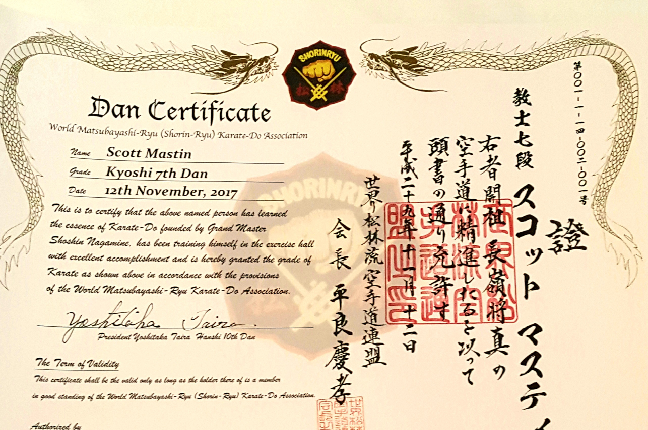 SHORINRYU
松 林
Dan Certificate
World Matsubayashi-Ryu (Shorin-Ryu) Karate-Do Association
Name Scott Mastin
Grade Kyoshi 7th Dan
Date 12th November, 2017
This is to certify that the above named person has learned
the essence of Karate-Do founded by Grand Master
Shoshin Nagamine, has been training himself in the exercise hall
with excellent accomplishment and is hereby granted the grade of
Karate as shown above in accordance with the provisions
of the World Matsubayashi-Ryu Karate-Do Association.
Yoshitaka Taira
President Yoshitaka Taira Hanshi 10th Dan
The Term of Validity
This certificate shall be valid only as long as the holder there of is a member
in good standing of the World Matsubayashi-Ryu (Shorin-Ryu) Karate-Do Association.
Authorized by
SHORINRYU
第001-1-14-002-001号
證
教士七段 スコット マスティ
右者開祖 長嶺将真の
空手道に精進したるを以って
頭書の通り允許す
平成二十九年十一月十二日
世界松林流空手道連盟
会長 平良慶孝